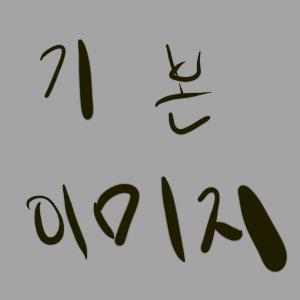 기본
이미지